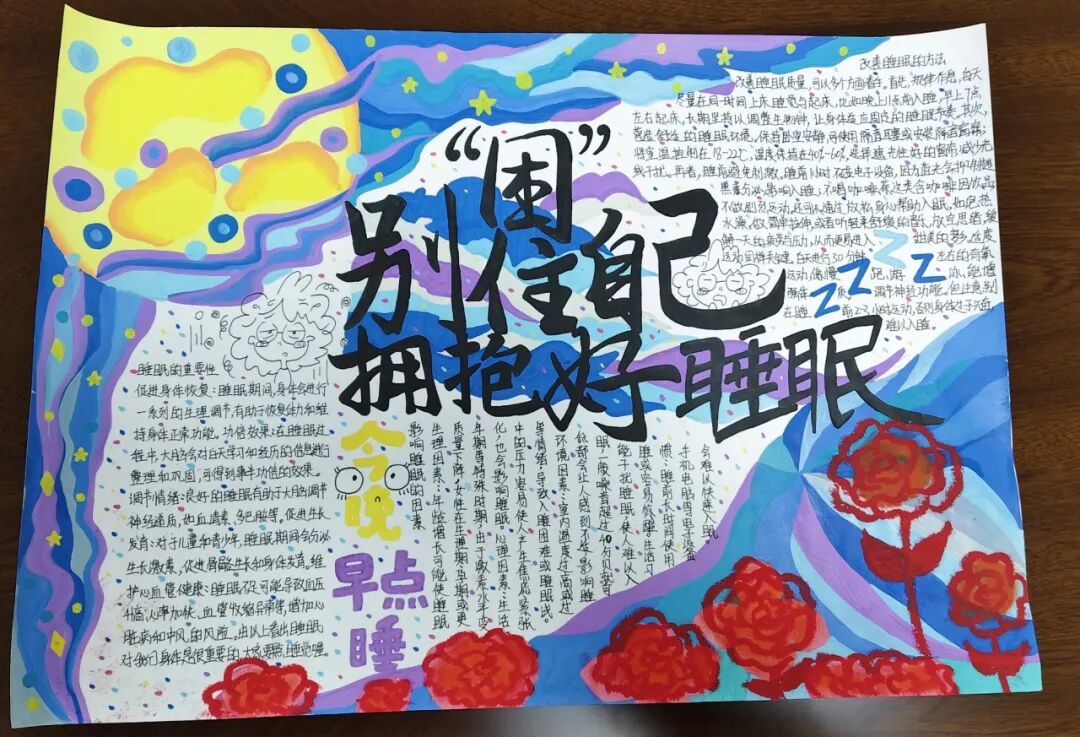 “困”
别住自己
拥抱好睡眠
今晚
早点
睡
z z z
改善睡眠的方法
改善睡眠质量,可以多个方面着手。首先,规律作息,每天
尽量在同一时间上床睡觉与起床,比如晚上11点前入睡,早上7点
左右起床,长期坚持以调整生物钟,让身体适应固定的睡眠节奏。其次,
营造舒适的睡眠环境,保持卧室安静,可使用隔音耳塞或安装隔音窗帘;
将室温控制在18-22℃,湿度保持在40%-60%,选择遮光性好的窗帘,减少光
线干扰。再者,睡前避免刺激,睡前1小时不要电子设备,因为蓝光会抑制褪
黑素分泌,影响入睡;不喝咖啡、浓茶类含咖啡因饮品,
不做剧烈运动,还可以通过放松身心帮助入眠,如泡热
水澡,做简单拉伸,或者听轻柔舒缓的音乐,放空思绪,缓
解一天的疲劳与压力,从而更易进入甜美的梦。适度
运动同样关键,白天进行30分钟左右的有氧
运动,像慢跑,游泳,能增
强体质,调节神经功能。但注意别
在睡前2-3小时运动,否则身体过于兴奋,
难以入睡。
睡眠的重要性
促进身体恢复:睡眠期间,身体会进行
一系列的生理调节,有助于恢复体力和维
持身体正常功能。功倍效果:在睡眠过
程中,大脑会对白天学习和经历的信息进行
整理和巩固,可得到事半功倍的效果。
调节情绪:良好的睡眠有助于大脑调节
神经递质,如血清素,多巴胺等。促进生长
发育:对于儿童和青少年,睡眠期间会分泌
生长激素,促进骨骼生长和身体发育,维
护心血管健康:睡眠不足可能导致血压
升高,心率加快、血管收缩异常等,增加心
脏病和中风的风险。由以上看出睡眠
对我们身体是很重要的,大家要照睡觉喔
影响睡眠的因素
生理因素:年龄增长可能使睡眠
质量下降,女性在生理期孕期或更
年期等特殊时期,由于激素水平变
化,也会影响睡眠。心理因素:生活
中的压力容易使人产生焦虑紧张
等情绪,导致入睡困难或睡眠浅。
环境因素:室内温度过高或过
低都会让人感到不适,影响睡
眠,一般噪音超过40分贝就可
能干扰睡眠,使人难以入
睡或容易惊醒。生活习
惯:睡前长时间使用
手机电脑等电子设备
会难以快速入眠。